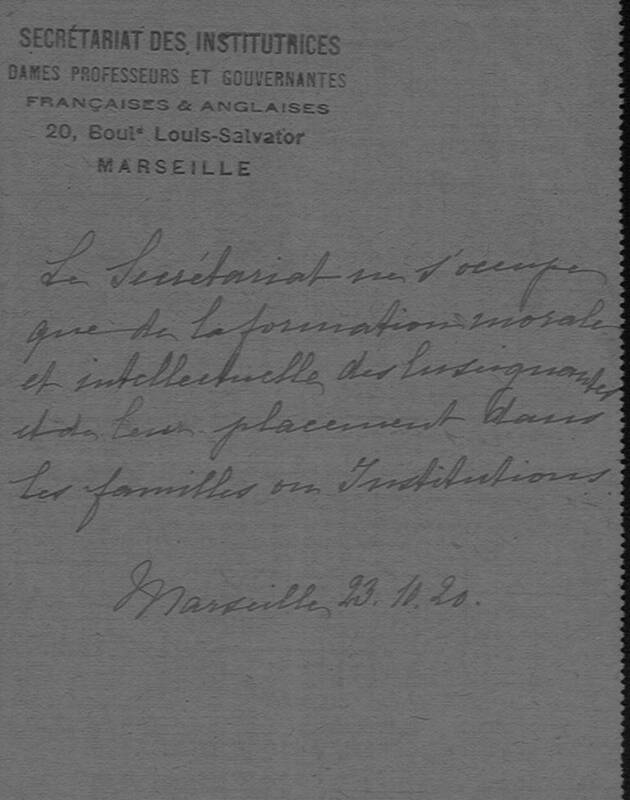 SECRÉTARIAT DES INSTITUTRICES
DAMES PROFESSEURS ET GOUVERNANTES
FRANÇAISES & ANGLAISES
20, Boulᵈ Louis-Salvator
MARSEILLE
Le Secrétariat ne s'occupe
que de la formation morale
et intellectuelle des Enseignantes
et de leur placement dans
les familles ou Institutions.
Marseille 23.10.20.